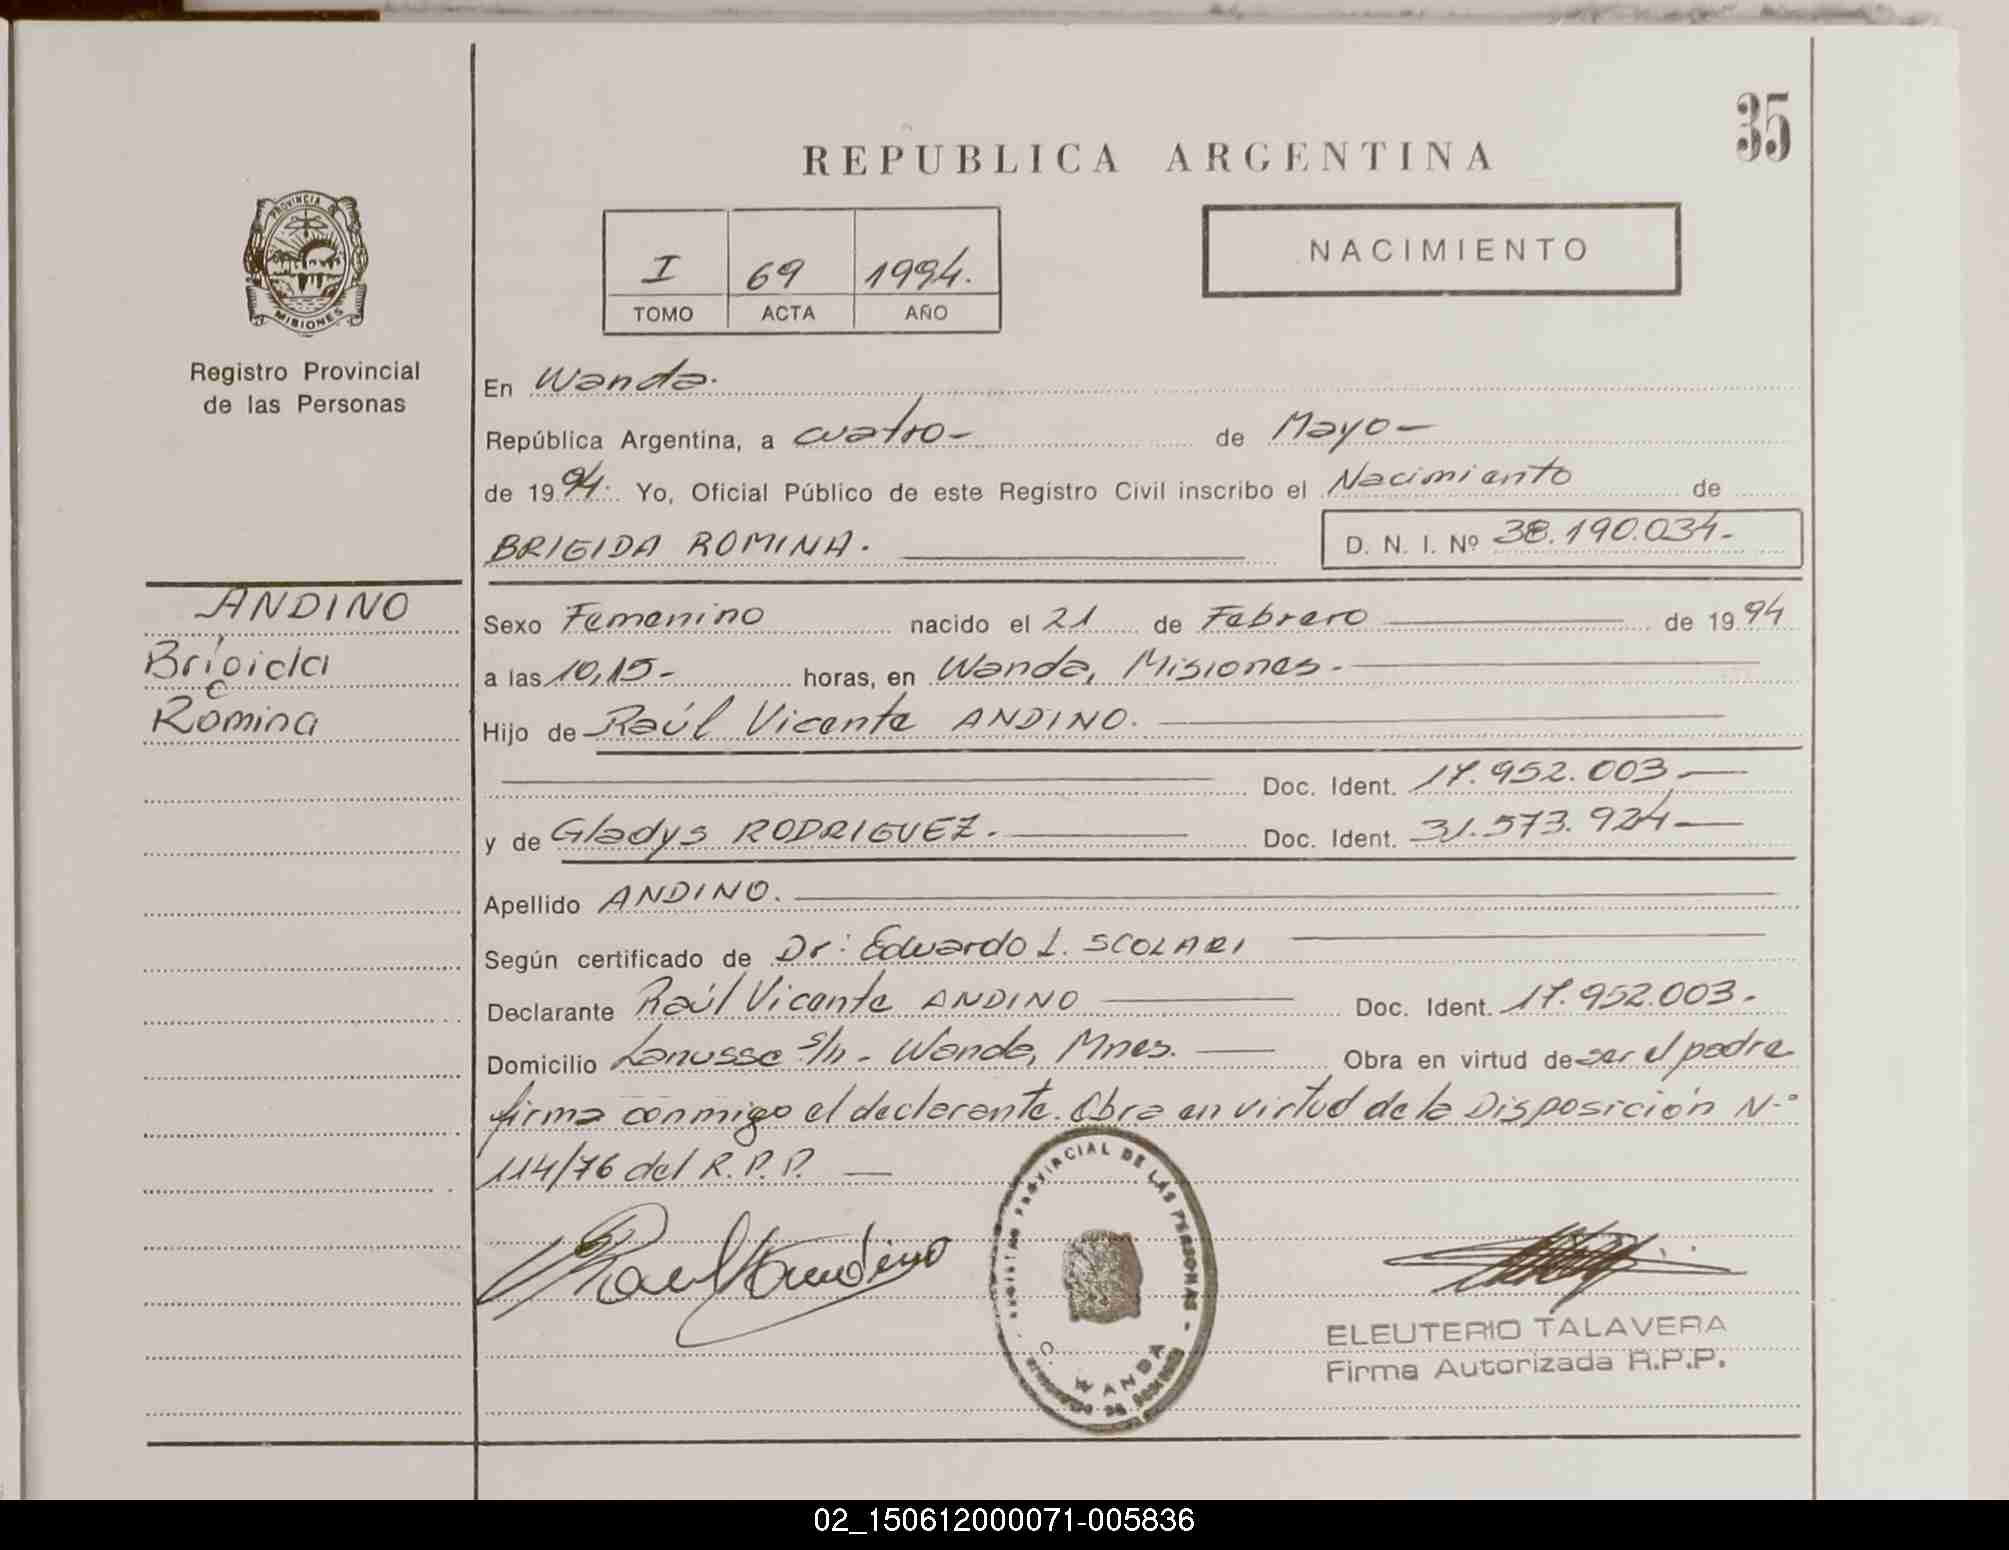 35
REPUBLICA ARGENTINA
PROVINCIA DE
MISIONES
Registro Provincial
de las Personas
I 69 1994.
TOMO ACTA AÑO
NACIMIENTO
En Wanda.
República Argentina, a cuatro- de Mayo-
de 1994. Yo, Oficial Público de este Registro Civil inscribo el Nacimiento de
BRIGIDA ROMINA. D. N. I. Nº 38.190.034.-
ANDINO
Brigida
Romina
Sexo Femenino nacido el 21 de Febrero de 1994
a las 10,15- horas, en Wanda, Misiones.-
Hijo de Raúl Vicente ANDINO.
Doc. Ident. 17.952.003
y de Gladys RODRIGUEZ. Doc. Ident. 31.573.924
Apellido ANDINO.
Según certificado de Dr: Eduardo L. SCOLARI
Declarante Raúl Vicente ANDINO Doc. Ident. 17.952.003.
Domicilio Lanusse s/n - Wanda, Mnes. Obra en virtud de ser el padre
firma conmigo el declarante. Obra en virtud de la Disposición N°
114/76 del R.P.P.
Raul Andino
REGISTRO PROVINCIAL DE LAS PERSONAS
WANDA
ELEUTERIO TALAVERA
Firma Autorizada R.P.P.
02_150612000071-005836